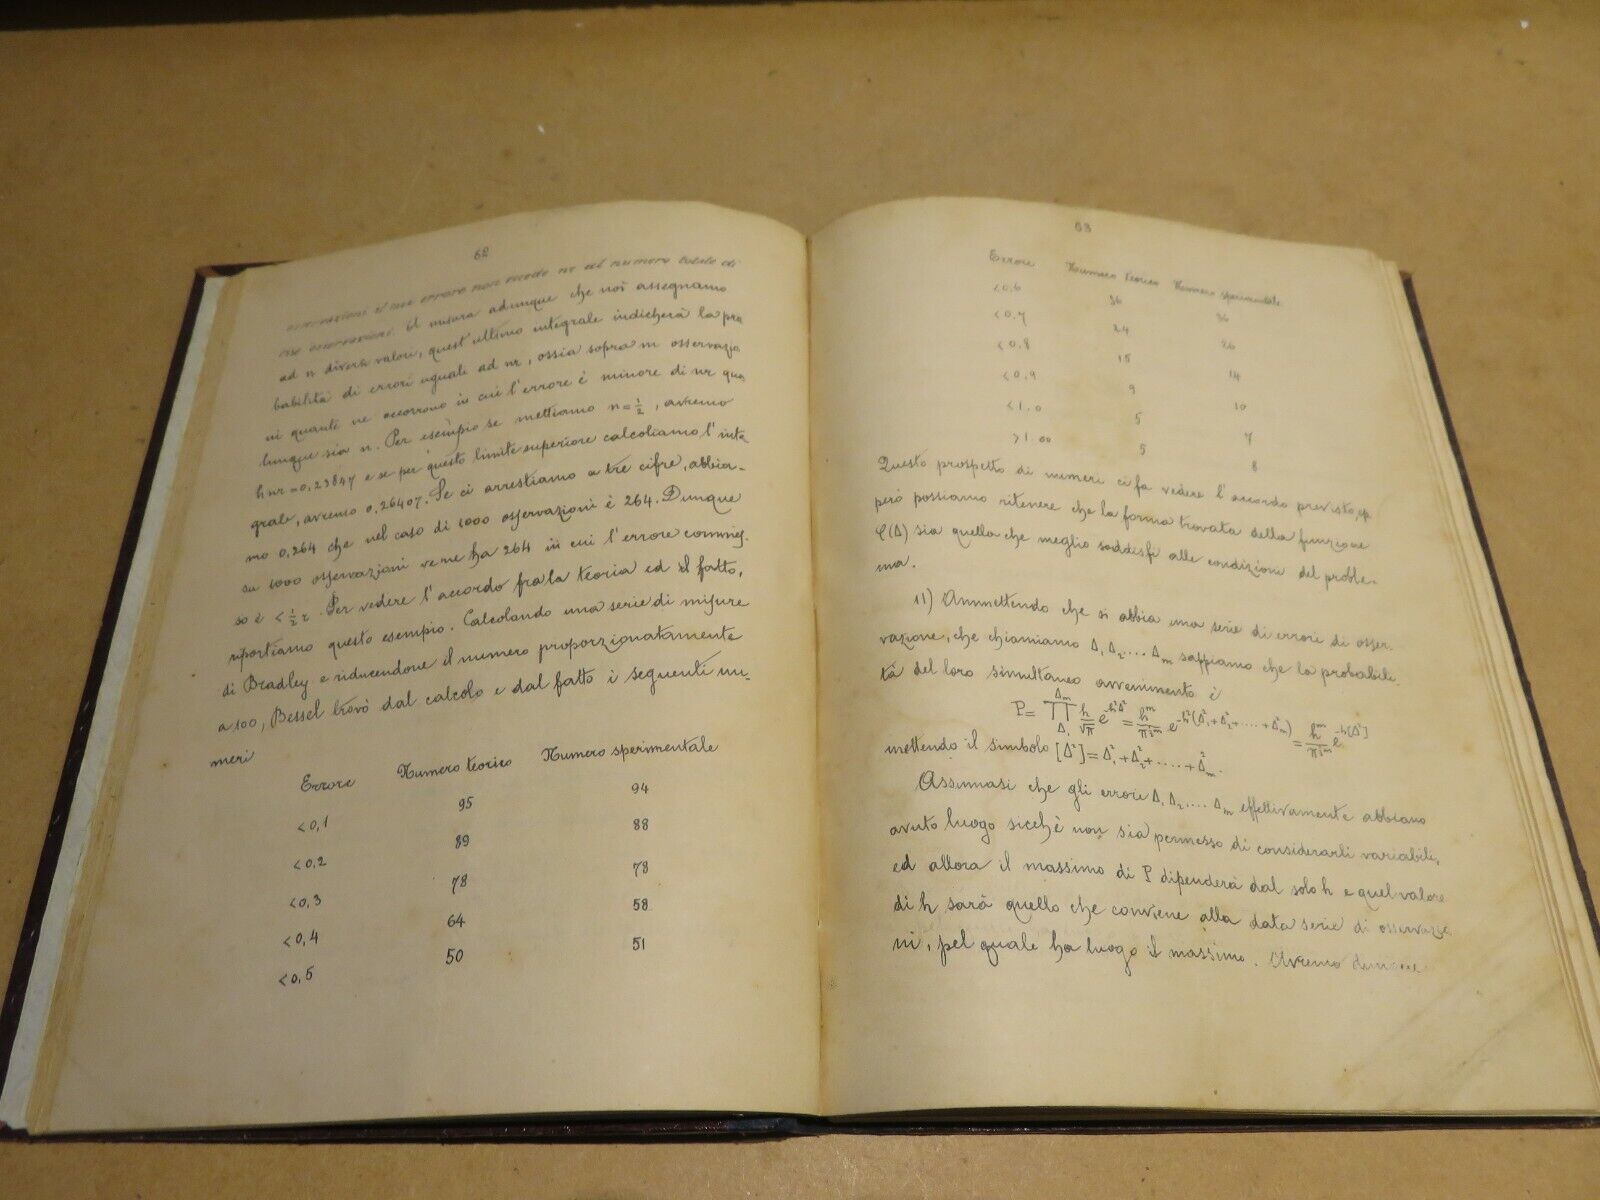 62
osservazioni il cui errore non eccede nr al numero totale di
esse osservazioni. A misura adunque che noi assegnamo
ad n diversi valori, quest'ultimo integrale indicherà la pro
babilità di errori uguali ad nr, ossia sopra m osservazio
ni quanti ne occorrono in cui l'errore è minore di nr qua
lunque sia n. Per esempio se mettiamo n=½, avremo
hnr=0,23847 e se per questo limite superiore calcoliamo l'inte
grale, avremo 0,26407. Se ci arrestiamo a tre cifre, abbia-
mo 0,264 che nel caso di 1000 osservazioni è 264. Dunque
su 1000 osservazioni ve ne ha 264 in cui l'errore commes-
so è <½r. Per vedere l'accordo fra la teoria ed il fatto,
riportiamo questo esempio. Calcolando una serie di misure
di Bradley e riducendone il numero proporzionatamente
a 100, Bessel trovò dal calcolo e dal fatto i seguenti nu-
meri
Errore Numero teorico Numero sperimentale
<0,1 95 94
<0,2 89 88
<0,3 78 78
<0,4 64 58
<0,5 50 51
63
Errore Numero teorico Numero sperimentale
<0.6 36 36
<0.7 24 26
<0.8 15 14
<0.9 9 10
<1.0 5 7
>1.00 5 8
Questo prospetto di numeri ci fa vedere l'accordo previsto, ep
però possiamo ritenere che la forma trovata della funzione
φ(Δ) sia quella che meglio soddisfi alle condizioni del proble-
ma.
11) Ammettendo che si abbia una serie di errori di osser-
vazione, che chiamiamo Δ₁ Δ₂.... Δₘ sappiamo che la probabili-
tà del loro simultaneo avvenimento è
P= ∏ h/√π e^-h²Δ² = hᵐ/π^½m e^-h²(Δ₁²+Δ₂²+....+Δₘ²) = hᵐ/π^½m e^-h[Δ²]
mettendo il simbolo [Δ²]=Δ₁²+Δ₂²+....+Δₘ².
Assumasi che gli errori Δ₁ Δ₂.... Δₘ effettivamente abbiano
avuto luogo sicchè non sia permesso di considerarli variabili,
ed allora il massimo di P dipenderà dal solo h e quel valore
di h sarà quello che conviene alla data serie di osservazio
ni, pel quale ha luogo il massimo. Avremo dunque